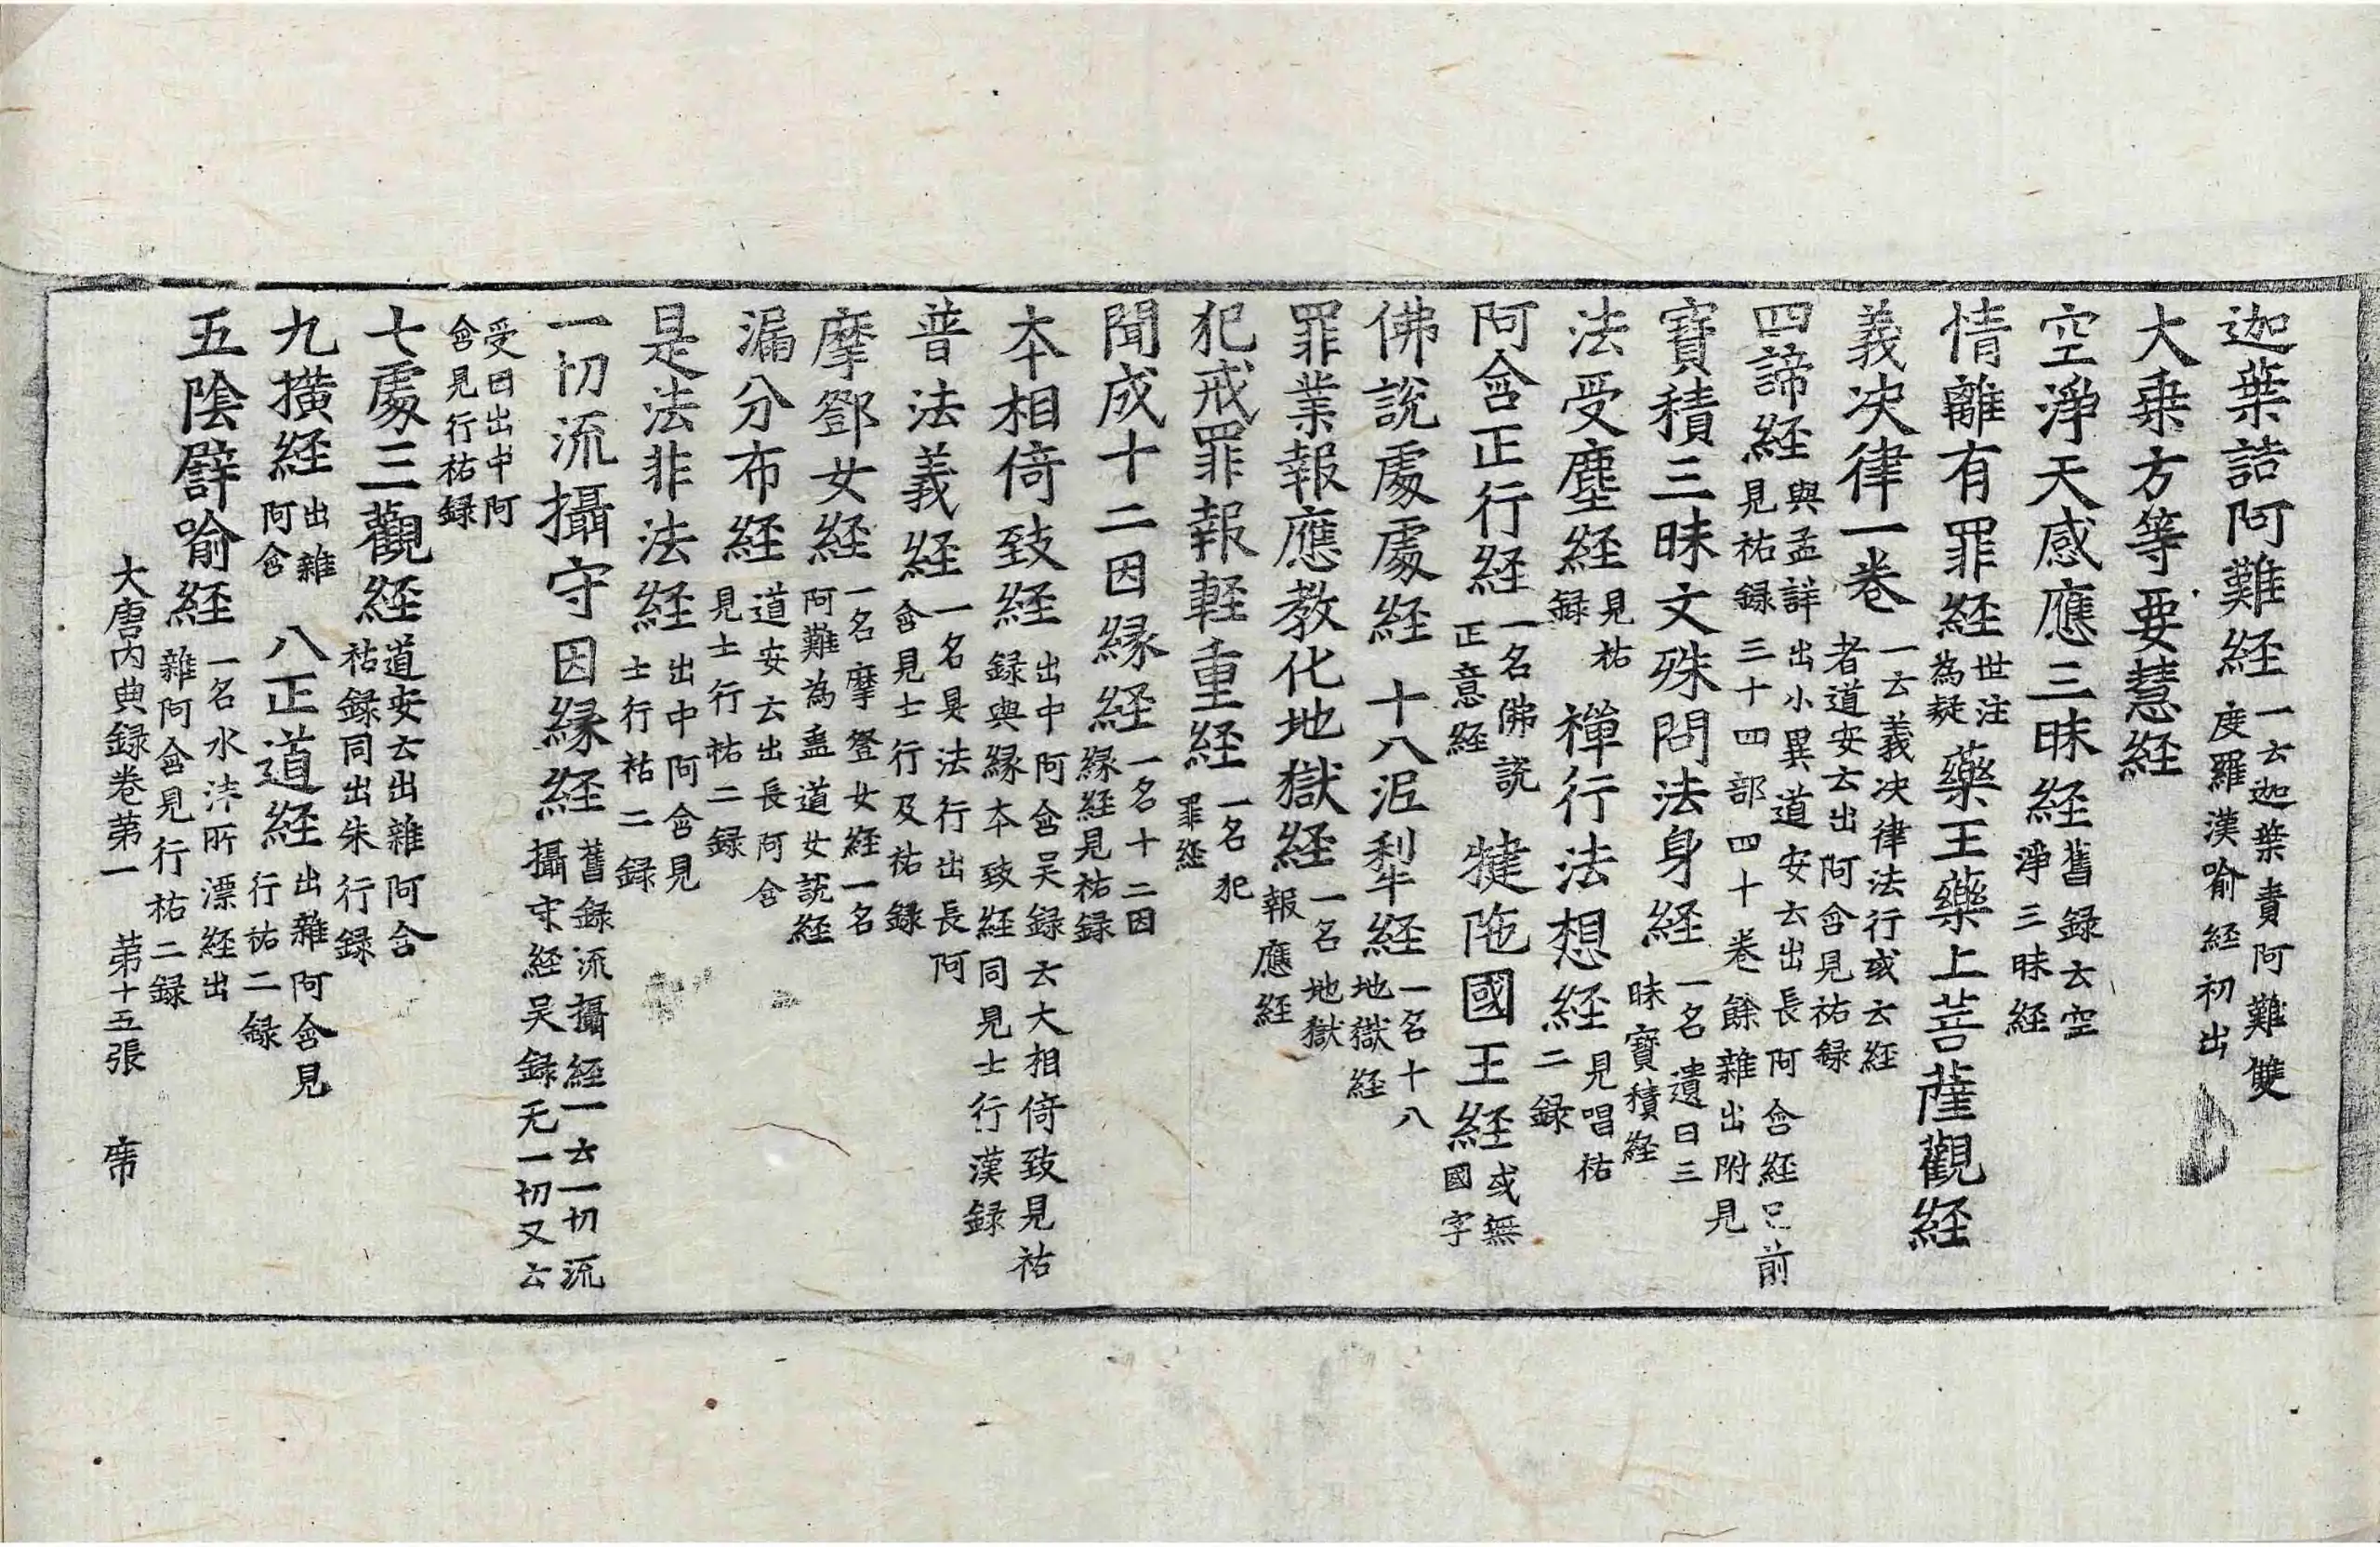 迦葉詰阿難經一云迦葉責阿難雙度羅漢喻經初出
大乗方等要慧経
空淨天感應三昧経舊録云空淨三昧経
情離有罪経世注為疑 藥王藥上菩薩觀経
義决律一巻一云義决律法行或云経者道安云出阿含見祐録
四諦経與孟詳出小異道安云出長阿含経已前見祐録三十四部四十巻餘雜出附見
寶積三昧文殊問法身経一名遺日三昧寶積経
法受塵経見祐録 禪行法想経見唱祐二録
阿含正行経一名佛說正意経 犍陁國王経或無國字
佛說處處経 十八泥犁経一名十八地獄経
罪業報應教化地獄経一名地獄報應経
犯戒罪報軽重経一名犯罪経
聞成十二因縁経一名十二因縁経見祐録
本相倚致経出中阿含吴録云大相倚致見祐録與縁本致経同見士行漢録
普法義経一名具法行出長阿含見士行及祐録
摩鄧女経一名摩登女経一名阿難為蠱道女説経
漏分布経道安云出長阿含見士行祐二録
是法非法経出中阿含見士行祐二録
一切流攝守因縁経舊録流攝経一云一切流攝守経吴録无一切又云
受因出中阿含見行祐録
七處三觀経道安云出雜阿含祐録同出朱行録
九横経出雜阿含 八正道経出雜阿含見行祐二録
五陰辟喻経一名水沫所漂経出雜阿含見行祐二録
大唐内典録巻第一 第十五張 席